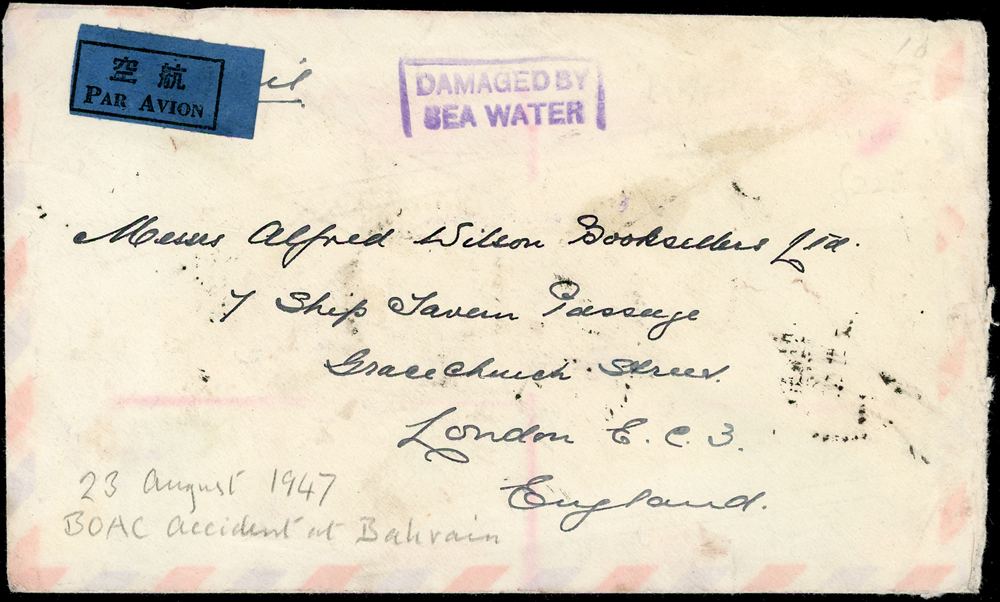 空航
PAR AVION
DAMAGED BY
SEA WATER
Messrs Alfred Wilson Booksellers Ltd.
7 Ship Tavern Passage
Gracechurch Street.
London E.C.3.
England.
23 August 1947
BOAC accident at Bahrain